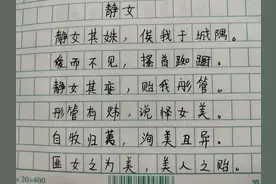 静女
静女其姝，俟我于城隅。
爱而不见，搔首踟蹰。
静女其娈，贻我彤管。
彤管有炜，说怿女美。
自牧归荑，洵美且异。
匪女之为美，美人之贻。
×20=400